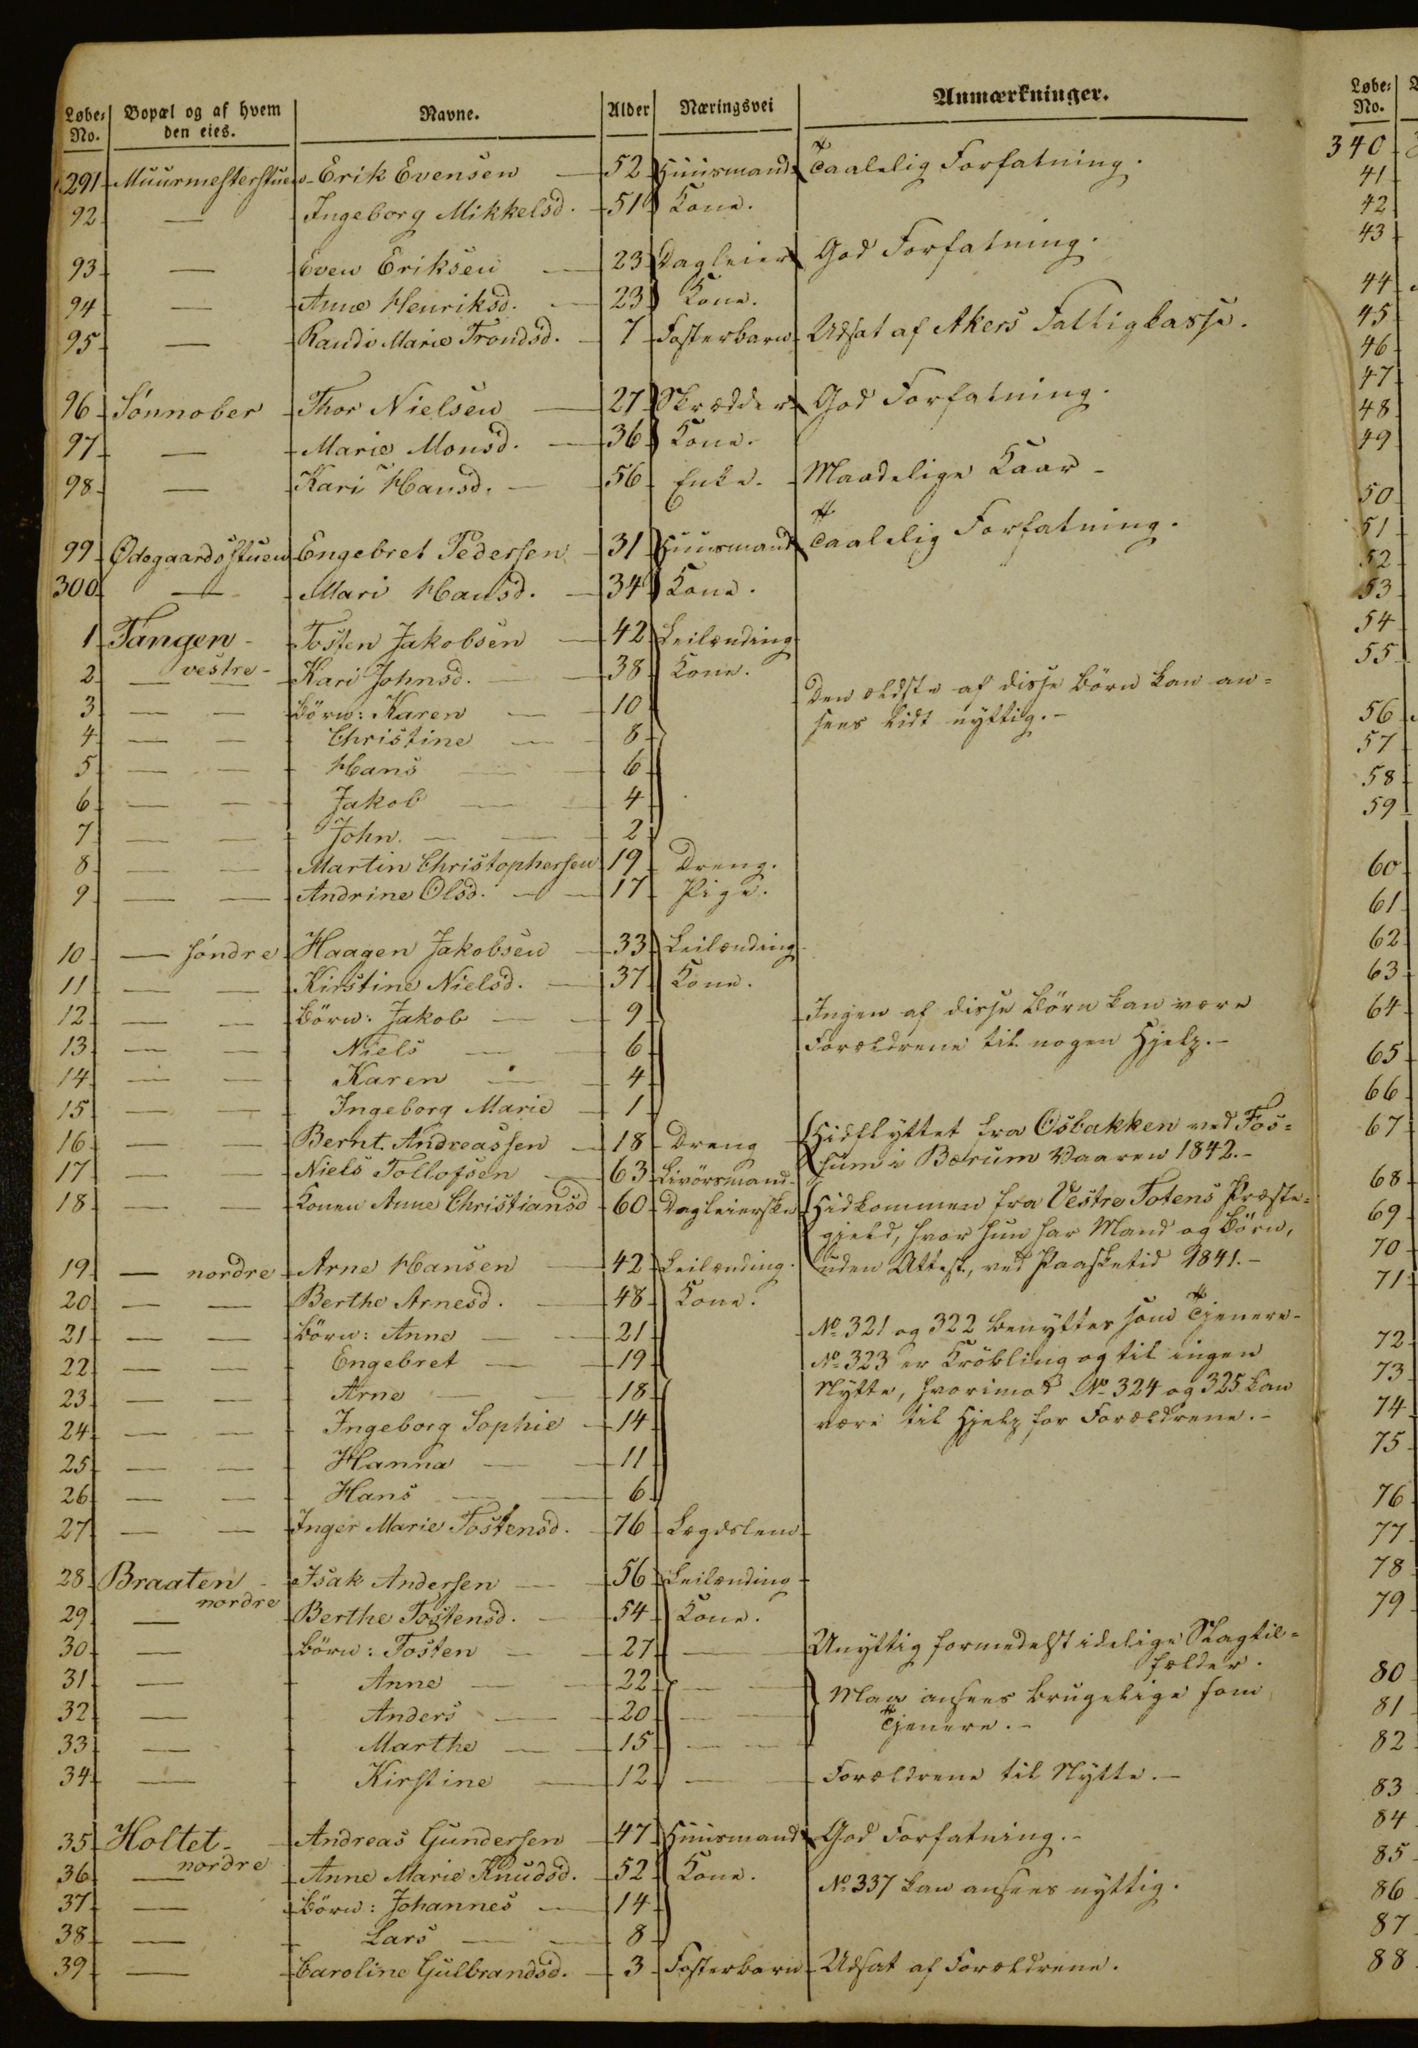 Løbe- No. Bopæl og af hvem den eies. Navne. Alder Næringsvei Anmærkninger.
291 Muurmesterstuen Erik Evensen 52 Huusmand Taalelig Forfatning.
92 — Ingeborg Mikkelsd. 51 Kone.
93 — Even Eriksen 23 Dagleier God Forfatning.
94 — Anne Henriksd. 23 Kone.
95 — Randi Marie Trondsd. 7 Fosterbarn Udsat af Akers Fattigkasse.
96 Sönnober Thor Nielsen 27 Skrædder God Forfatning.
97 — Marie Monsd. 36 Kone.
98 — Kari Hansd. 56 Enke. Maadelige Kaar
99 Ödegaardsstuen Engebret Pedersen 31 Huusmand Taalelig Forfatning.
300 — Mari Hansd. 34 Kone.
1 Tangen vestre Tosten Jakobsen 42 Leilænding
2 — — Kari Johnsd. 38 Kone.
3 — — Börn: Karen 10 Den ældste af disse Börn kan an-
4 — — Christine 8 sees lidt nyttig.
5 — — Hans 6
6 — — Jakob 4
7 — — John. 2
8 — — Martin Christophersen 19 Dreng.
9 — — Andrine Olsd. 17 Pige.
10 — söndre Haagen Jakobsen 33 Leilænding
11 — — Kirstine Nielsd. 37 Kone.
12 — — Börn: Jakob 9 Ingen af disse Börn kan være
13 — — Niels 6 Forældrene til nogen Hjelp.
14 — — Karen 4
15 — — Ingeborg Marie 1
16 — — Bernt Andreassen 18 Dreng Hidflyttet fra Osbakken ved Fos-
17 — — Niels Tollofsen 63 Livörsmand sum i Bærum Vaaren 1842.
18 — — Konen Anne Christiansd 60 Dagleierske Hidkommen fra Vestre Totens Præste-
gjeld, hvor hun har Mand og Börn,
19 — nordre Arne Hansen 42 Leilænding. uden Attest, ved Paasketid 1841.
20 — — Berthe Arnesd. 48 Kone.
21 — — Börn: Anne 21 No 321 og 322 benyttes som Tjenere
22 — — Engebret 19 No 323 er Kröbling og til ingen
23 — — Arne 18 Nytte, hvorimod No 324 og 325 kan
24 — — Ingeborg Sophie 14 være til Hjelp for Forældrene.
25 — — Hanna 11
26 — — Hans 6
27 — — Inger Marie Tostensd. 76 Lægdslem
28 Braaten nordre Isak Andersen 56 Leilænding
29 — Berthe Tostensd. 54 Kone.
30 — Börn: Tosten 27 — Unyttig formedelst idelige Slagtil-
fælder.
31 — Anne 22 — — Maa ansees brugelige som
32 — Anders 20 — — Tjenere.
33 — Marthe 15 — —
34 — Kirstine 12 — Forældrene til Nytte.
35 Holtet nordre Andreas Gundersen 47 Huusmand God Forfatning.
36 — Anne Marie Knudsd. 52 Kone.
37 — Börn: Johannes 14 No 337 kan ansees nyttig.
38 — Lars 8
39 — Caroline Gulbrandsd. 3 Fosterbarn Udsat af Forældrene.
Løbe- No.
340
41
42
43
44
45
46
47
48
49
50
51
52
53
54
55
56
57
58
59
60
61
62
63
64
65
66
67
68
69
70
71
72
73
74
75
76
77
78
79
80
81
82
83
84
85
86
87
88